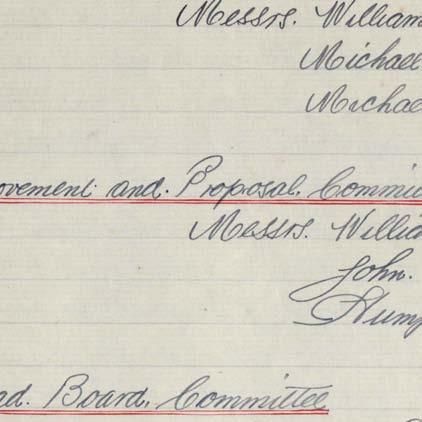 Messrs. William
Michael
Michael
ovement and Proposal. Commit
Messrs. Willia
John.
Hump
ad. Board. Committee